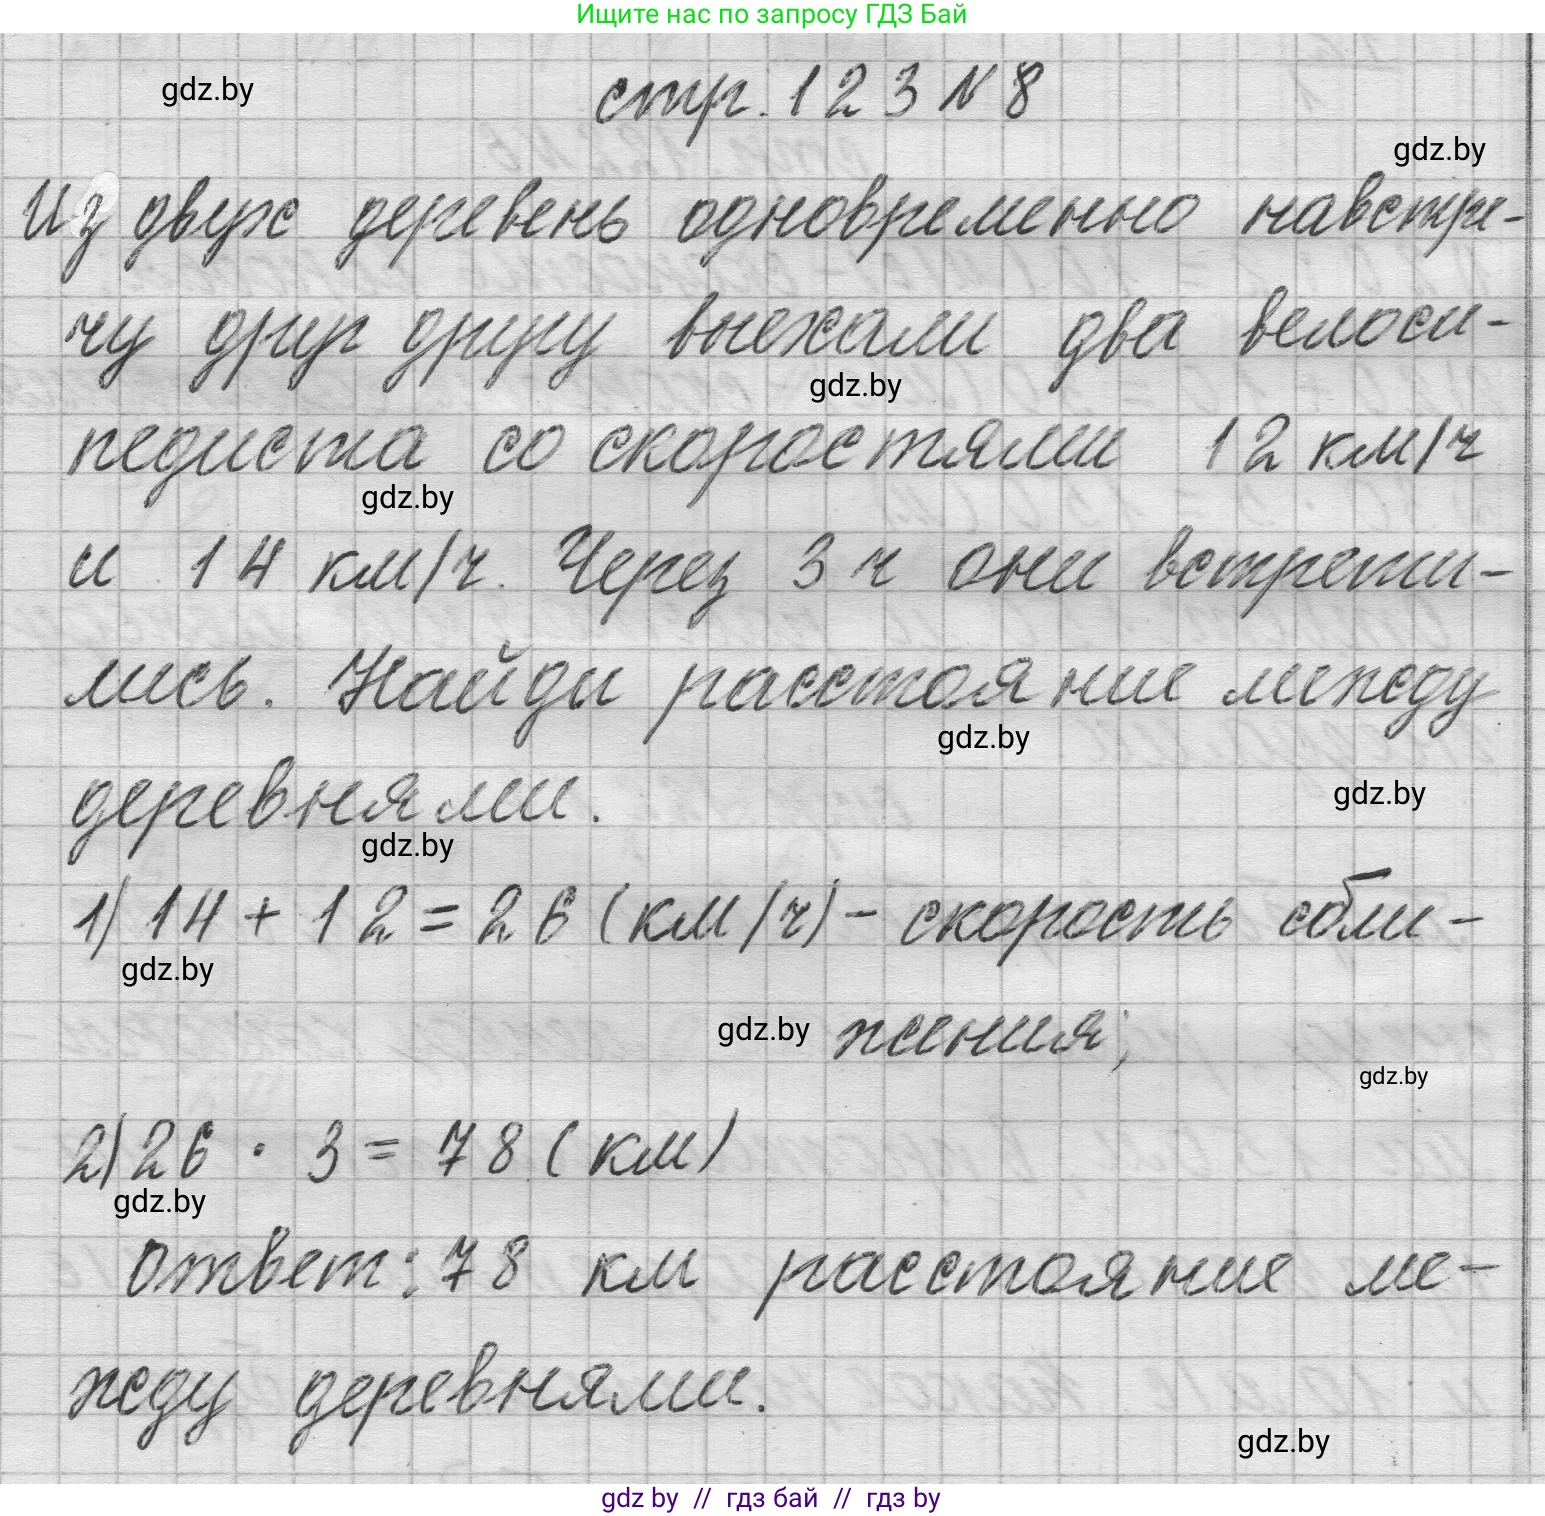 Ищите нас по запросу ГДЗ Бай
gdz.by
стр. 123 N 8
gdz.by
Из двух деревень одновременно навстре-
чу друг другу выехали два велоси-
gdz.by
педиста со скоростями 12 км/ч
gdz.by
и 14 км/ч. Через 3 ч они встрети-
лись. Найди расстояние между
gdz.by
деревнями.
gdz.by
gdz.by
1) 14 + 12 = 26 (км/ч) - скорость сбли-
gdz.by
gdz.by
жения;
gdz.by
2) 26 · 3 = 78 (км)
gdz.by
Ответ: 78 км расстояние ме-
жду деревнями.
gdz.by
gdz by // гдз бай // гдз by